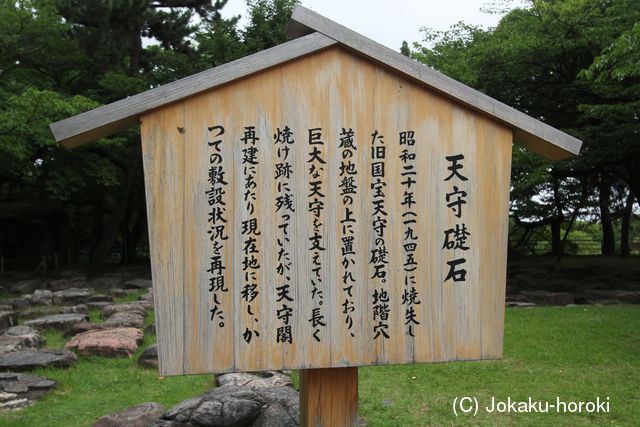 天守礎石
昭和二十年(一九四五)に焼失し
た旧国宝天守の礎石。地階穴
蔵の地盤の上に置かれており、
巨大な天守を支えていた。長く
焼け跡に残っていたが、天守閣
再建にあたり現在地に移し、か
つての敷設状況を再現した。
(C) Jokaku-horoki